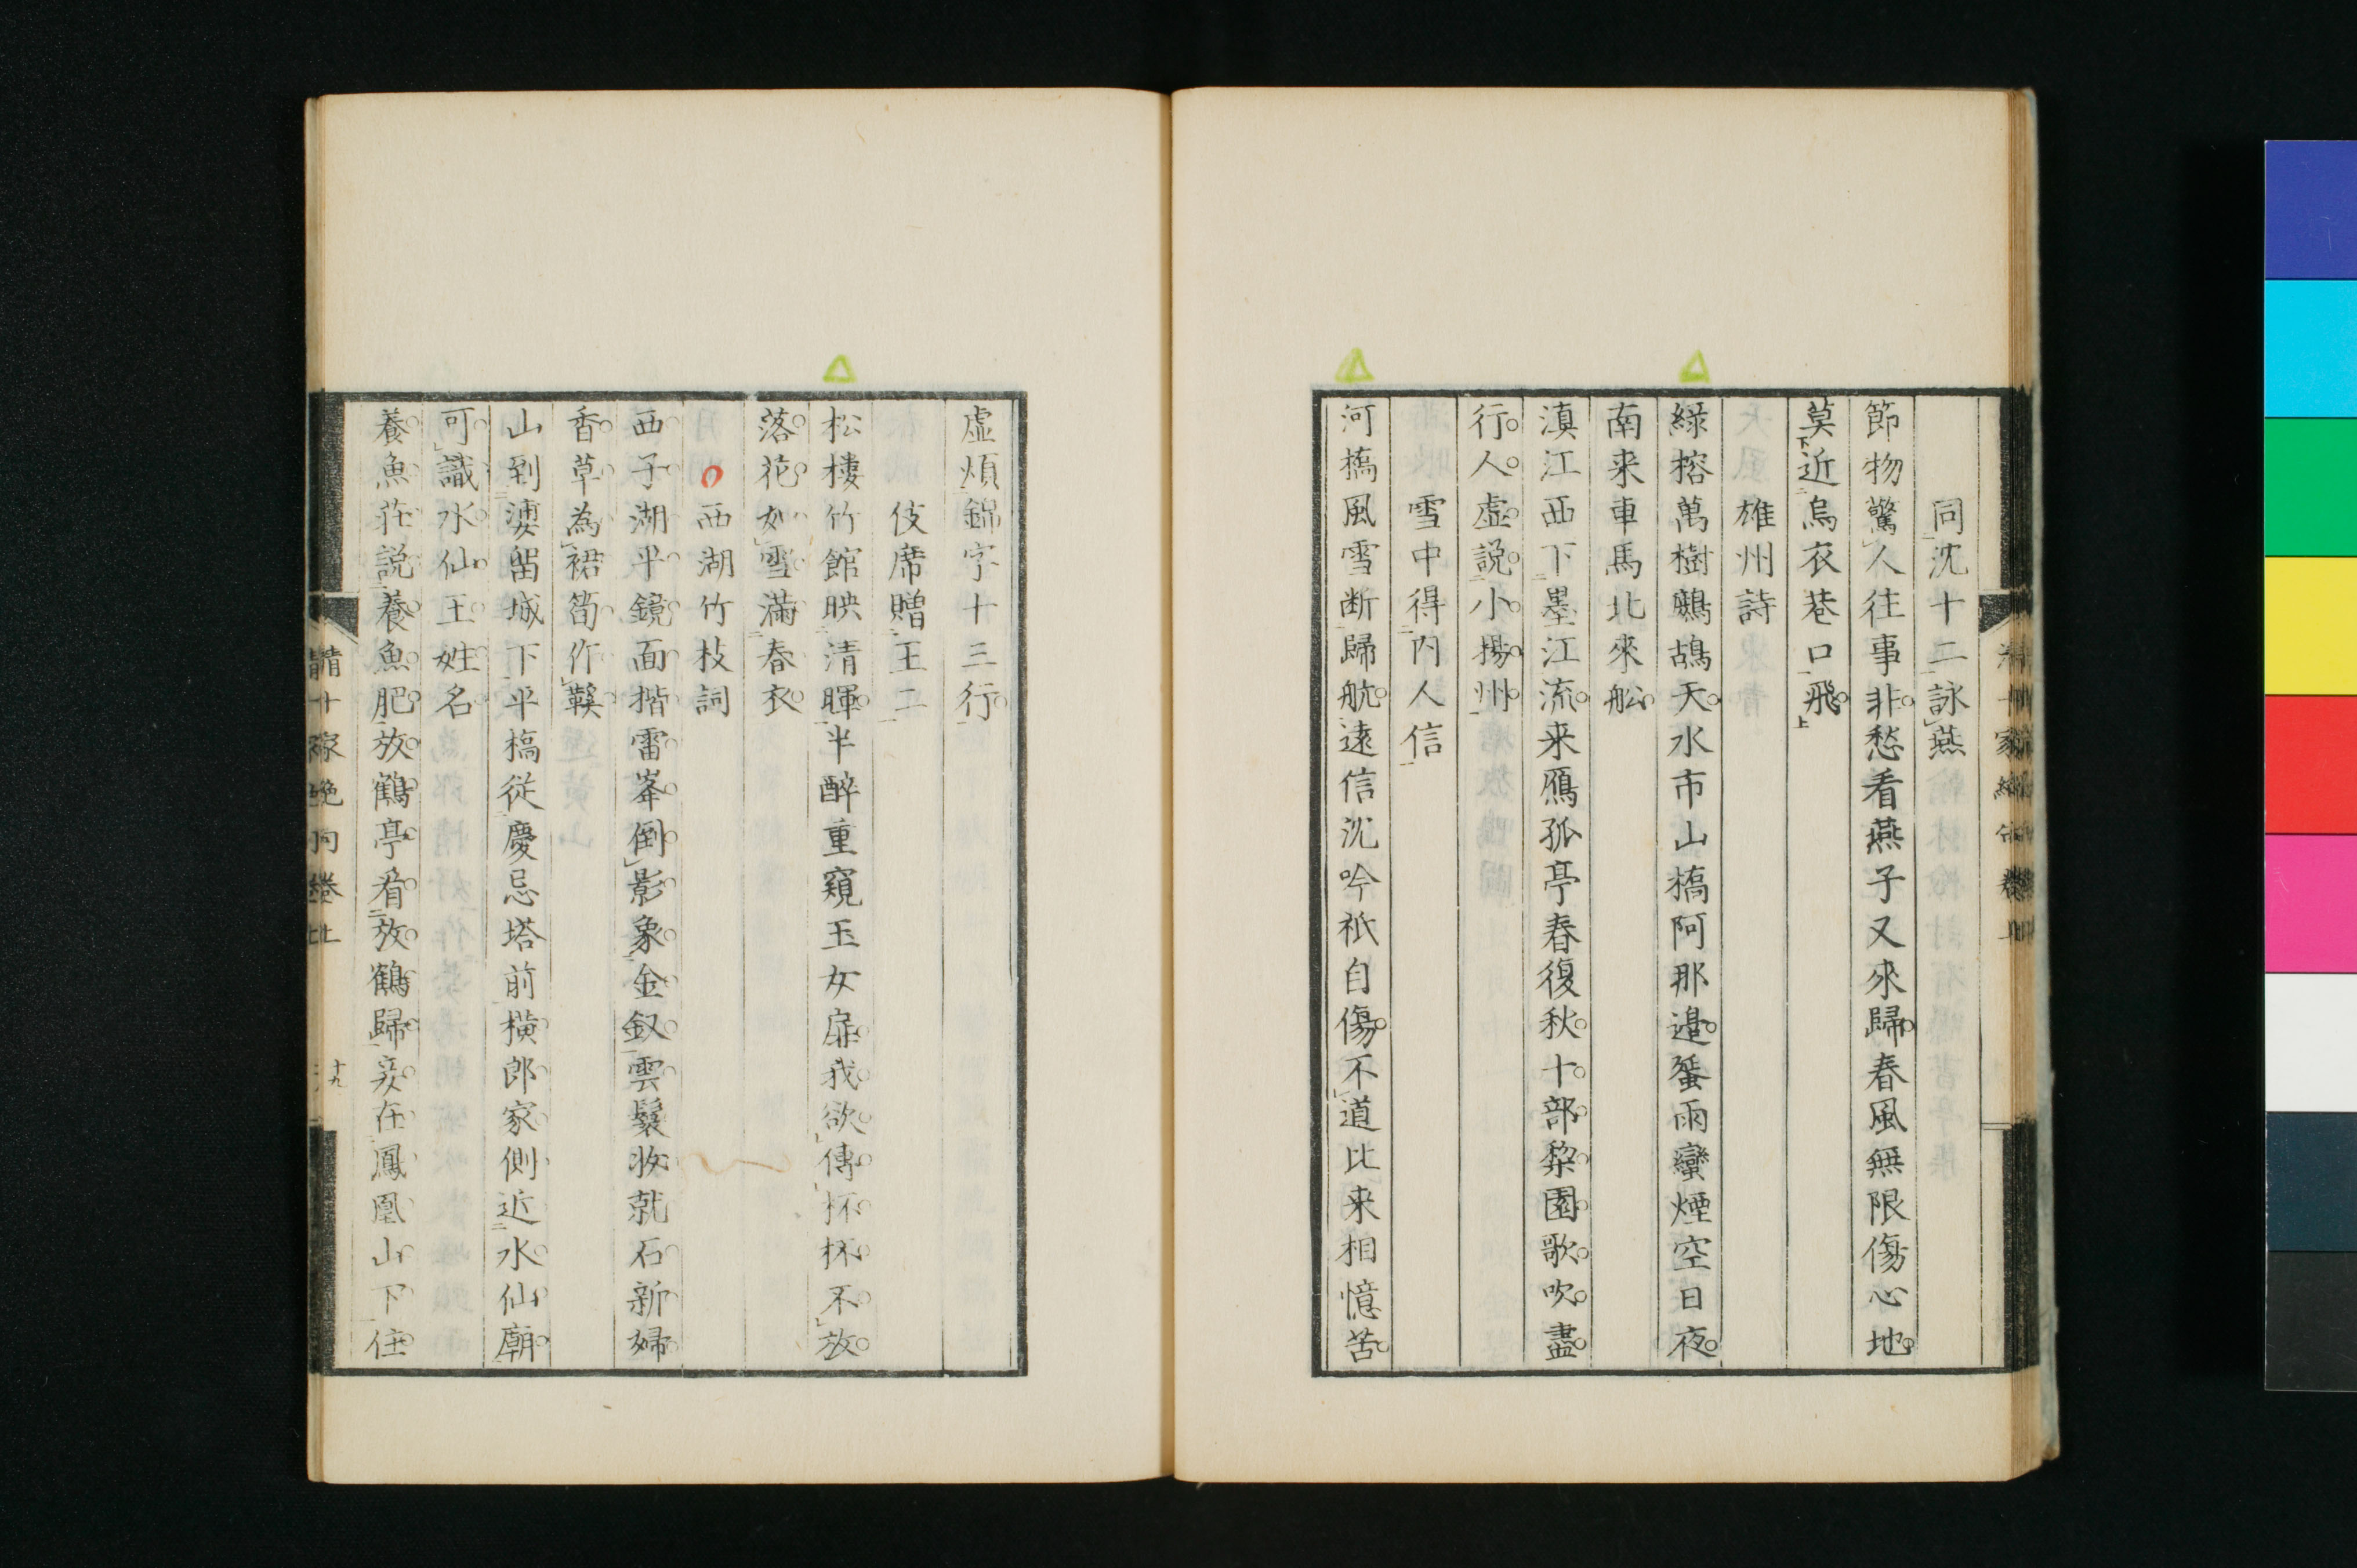 同沈十二詠燕
節物驚人往事非愁看燕子又來歸春風無限傷心地
莫近烏衣巷口飛
雄州詩
緑榕萬樹鷓鴣天水市山橋阿那邊蜑雨蠻煙空日夜
南来車馬北來舩
滇江西下墨江流来鴈孤亭春復秋十部梨園歌吹盡
行人虚説小揚州
雪中得内人信
河橋風雪断歸航遠信沈吟祇自傷不道比来相憶苦
虚煩錦字十三行
伎席贈王二
松樓竹館映清暉半醉重窺玉女扉我欲傳抔抔不放
落花如雪滿春衣
西湖竹枝詞
西子湖平鏡面揩雷峯倒影象金釵雲鬟妝就石新婦
香草為裙筍作鞵
山到漊留城下平橋從慶忌塔前橫郎家側近水仙廟
可識水仙王姓名
養魚莊説養魚肥放鶴亭看放鶴歸妾在鳳凰山下住
十九